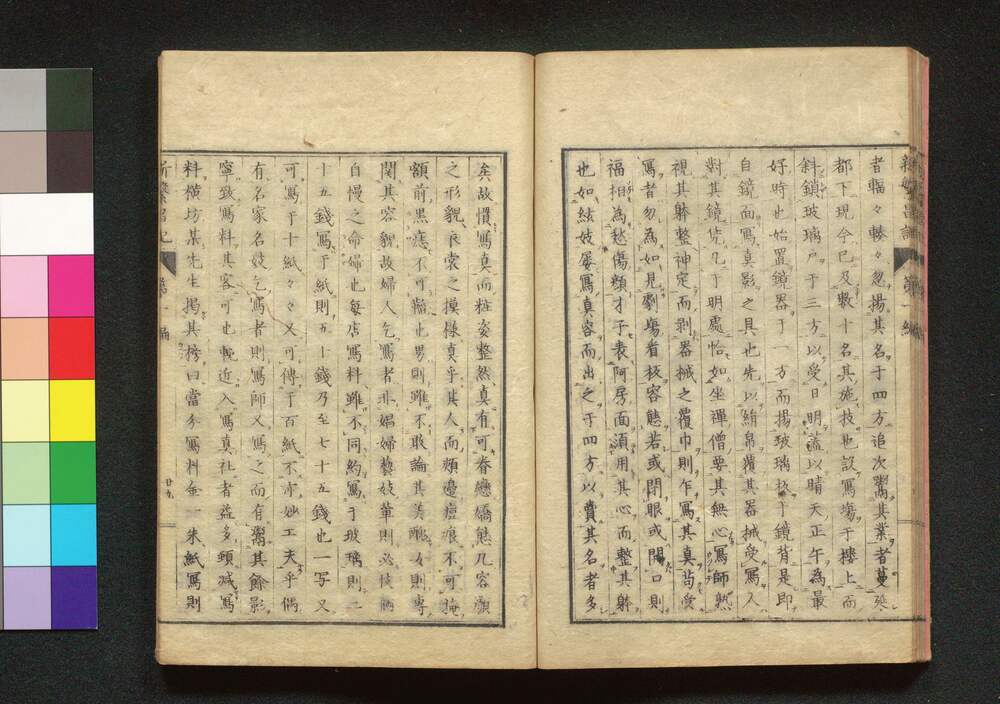 者輻々輳々忽揚其名于四方追次鬻其業者蔓延
都下現今已及數十名其施技也設寫塲于樓上而
斜鎖玻璃戸于三方以受日明蓋以晴天正午為最
好時也始置鏡器于一方而揚玻璃板于鏡背是即
自鏡面寫真影之具也先以絹帛覆其器械受寫人
對其鏡凭几于明處恰如坐禪僧要其無心寫師熟
視其躰整神定而剥器械之覆巾則乍寫其真苟受
寫者勿為如見劇塲者技容態若或閉眼或開口則
福相為愁傷顏才子表阿房面須用其心而整其躬
也如絃妓屡寫真容而出之于四方以賣其名者多
矣故慣寫真而粧姿整然真有可眷戀嬌態凡容顏
之形貌衣裳之摸樣真乎其人而頰邊痘痕不可掩
額前黒痣不可瞞也男則雖不敢論其美醜女則專
関其容貌故婦人乞寫者非娼婦藝妓輩則必技倆
自慢之命婦也每店寫料雖不同約寫于玻璃則二
十五錢寫于紙則五十錢乃至七十五錢也一写又
可寫于十紙々々又可傳于百紙不亦妙工夫乎偶
有名家名妓乞寫者則寫師又寫之而有鬻其餘影
寧致寫料其客可也輓近入寫真社者益多頓减寫
料横坊某先生揭其榜曰當分寫料金一朱紙寫則
新繁昌記 第一編